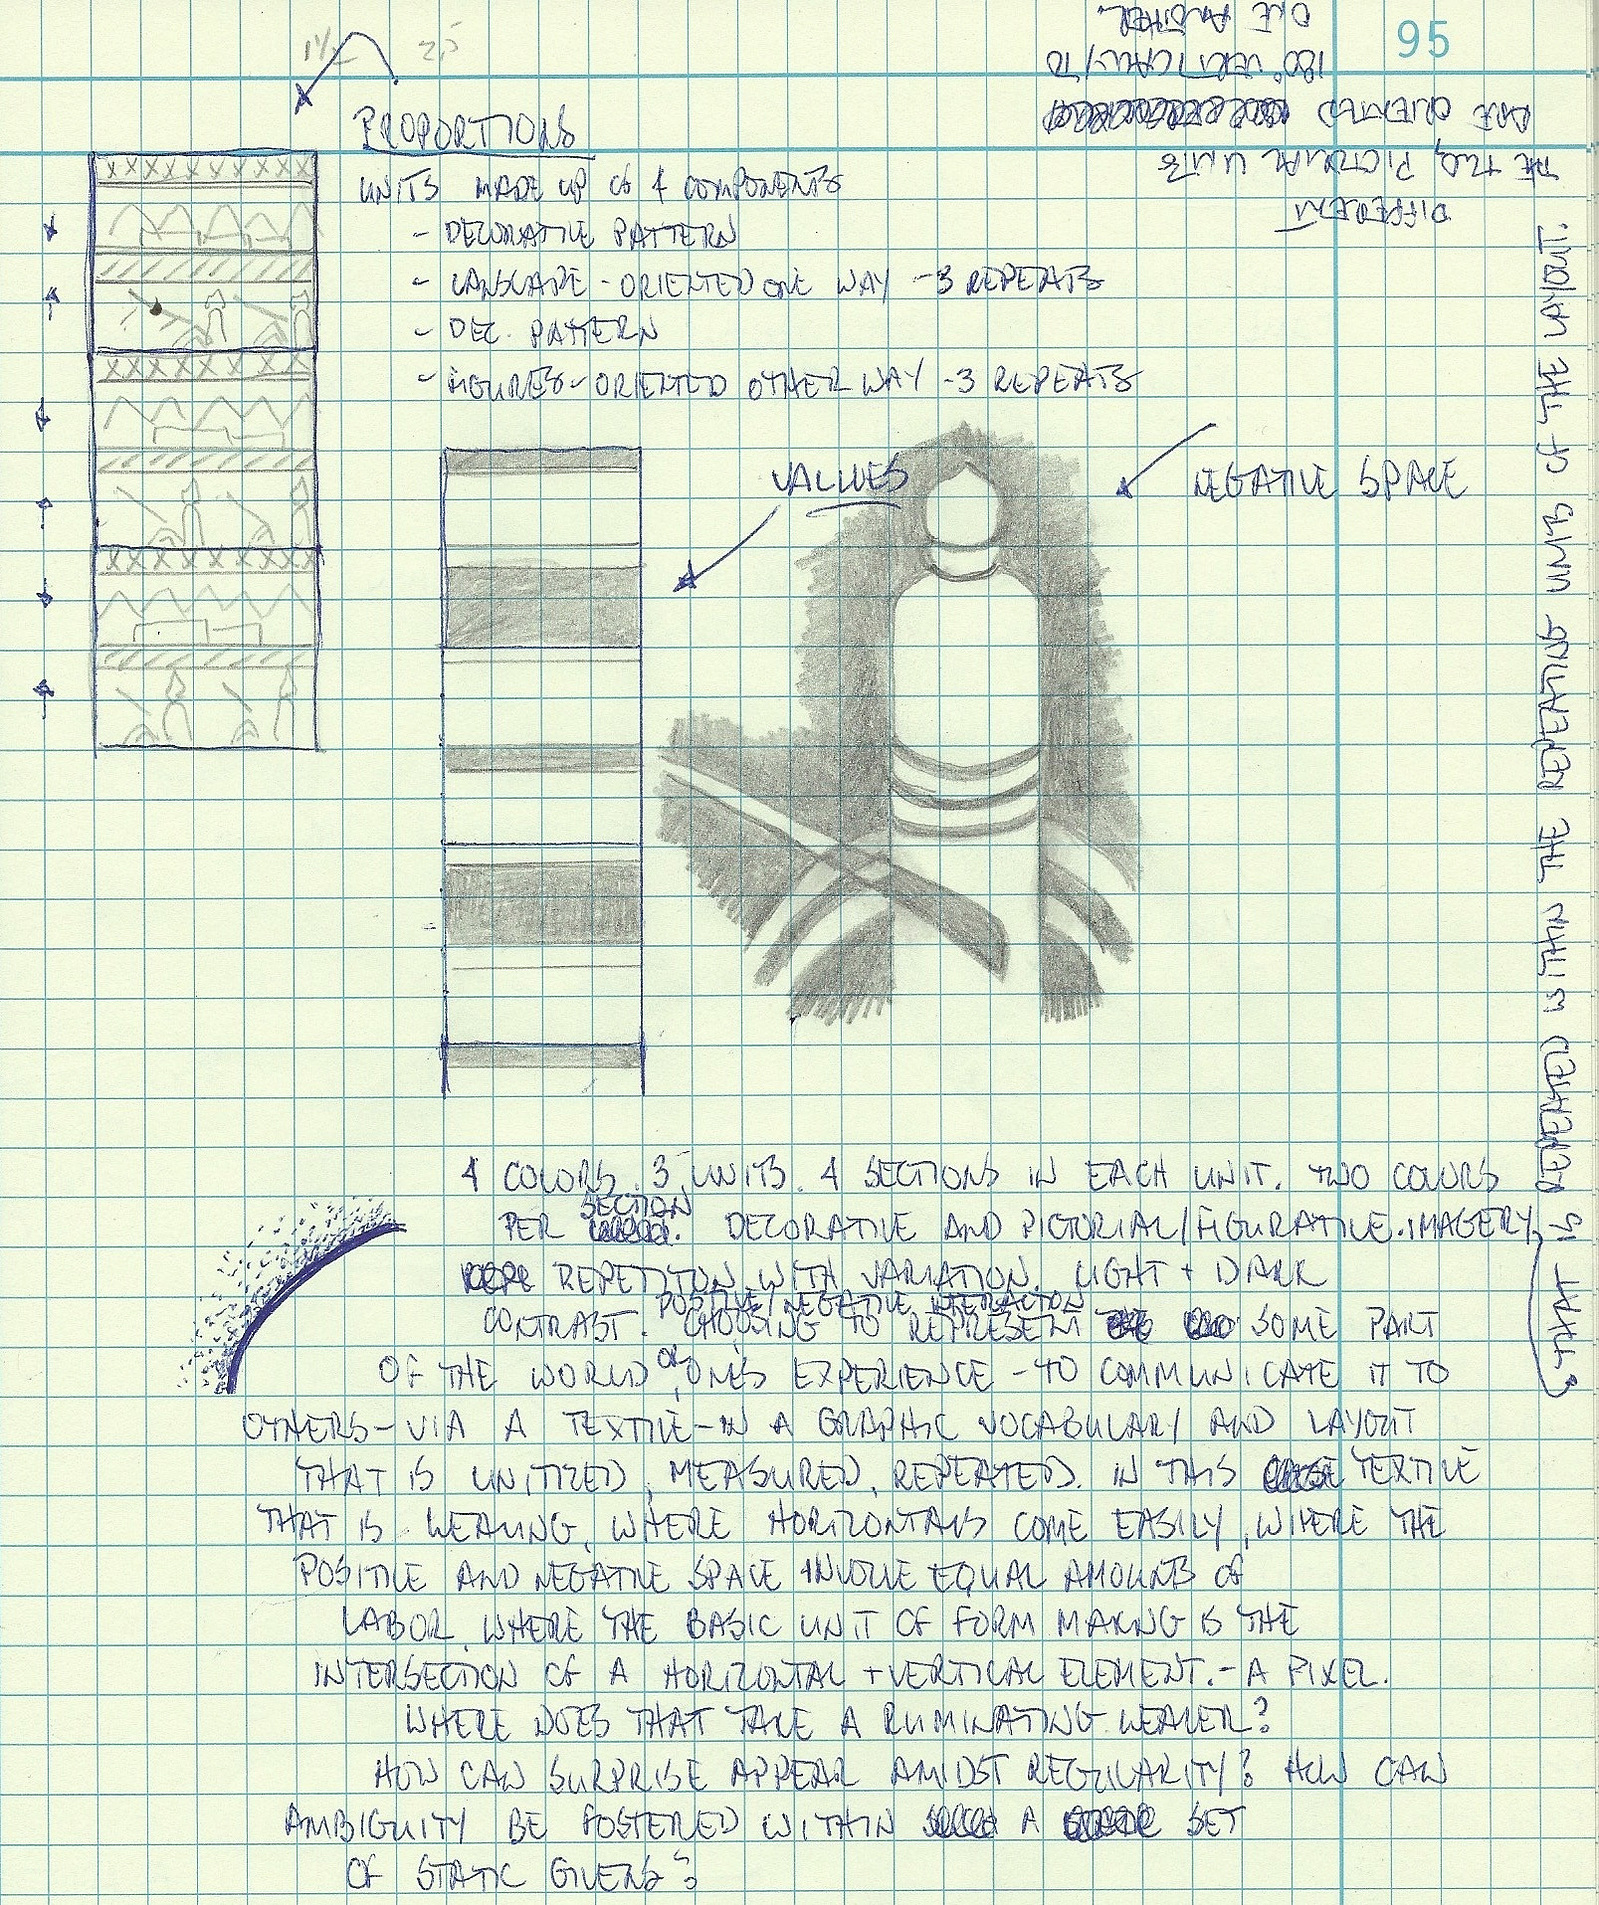 95
1½ 2.5
PROPORTIONS
UNITS MADE UP OF 4 COMPONENTS
- DECORATIVE PATTERN
- LANSCAPE - ORIENTED ONE WAY - 3 REPEATS
- DEC. PATTERN
- FIGURES - ORIENTED OTHER WAY - 3 REPEATS
DIFFERENT
THE TWO PICTORIAL UNITS
ARE ORIENTED
180° VERTICALLY TO
ONE ANOTHER.
VALUES
NEGATIVE SPACE
4 COLORS. 3 UNITS. 4 SECTIONS IN EACH UNIT. TWO COLORS
PER SECTION. DECORATIVE AND PICTORIAL/FIGURATIVE. IMAGERY
THAT IS ORIENTED WITHIN THE REPEATING UNITS OF THE LAYOUT.
REPETITON WITH VARIATION. LIGHT + DARK
CONTRAST. POSITIVE/NEGATIVE INTERACTION
CHOOSING TO REPRESENT SOME PART
OF THE WORLD OR ONE'S EXPERIENCE - TO COMMUNICATE IT TO
OTHERS - VIA A TEXTILE - IN A GRAPHIC VOCABULARY AND LAYOUT
THAT IS UNITIZED, MEASURED, REPEATED. IN THIS TEXTILE
THAT IS WEAVING, WHERE HORIZONTALS COME EASILY, WHERE THE
POSITIVE AND NEGATIVE SPACE INVOLVE EQUAL AMOUNTS OF
LABOR, WHERE THE BASIC UNIT OF FORM MAKING IS THE
INTERSECTION OF A HORIZONTAL + VERTICAL ELEMENT. - A PIXEL.
WHERE DOES THAT TAKE A RUMINATING WEAVER?
HOW CAN SURPRISE APPEAR AMIDST REGULARITY? HOW CAN
AMBIGUITY BE FOSTERED WITHIN A SET
OF STATIC GIVENS?